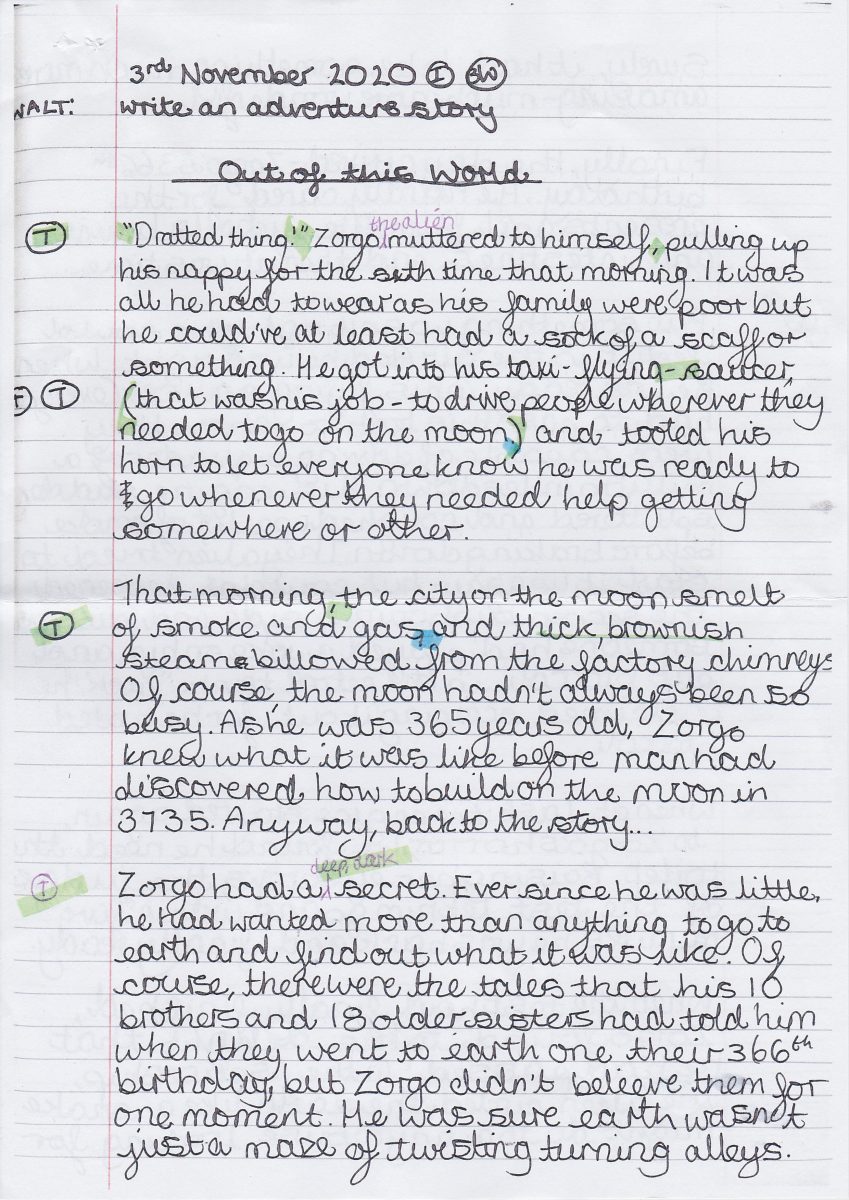 3rd November 2020 I SW
WALT: write an adventure story
Out of this World
T "Dratted thing!" Zorgo the alien muttered to himself, pulling up
his nappy for the sixth time that morning. It was
all he had to wear as his family were poor but
he could've at least had a sock of a scaff or
something. He got into his taxi-flying-sauter,
T (that was his job - to drive people wherever they
needed to go on the moon) and tooted his
horn to let everyone know he was ready to
go whenever they needed help getting
somewhere or other.
That morning, the city on the moon smelt
T of smoke and gas, and thick, brownish
steam billowed from the factory chimneys
Of course, the moon hadn't always been so
busy. As he was 365 years old, Zorgo
knew what it was like before man had
discovered how to build on the moon in
3735. Anyway, back to the story...
T Zorgo had a deep, dark secret. Ever since he was little,
he had wanted more than anything to go to
earth and find out what it was like. Of
course, there were the tales that his 10
brothers and 18 older sisters had told him
when they went to earth one their 366th
birthday, but Zorgo didn't beleive them for
one moment. He was sure earth wasn't
just a maze of twisting turning alleys.